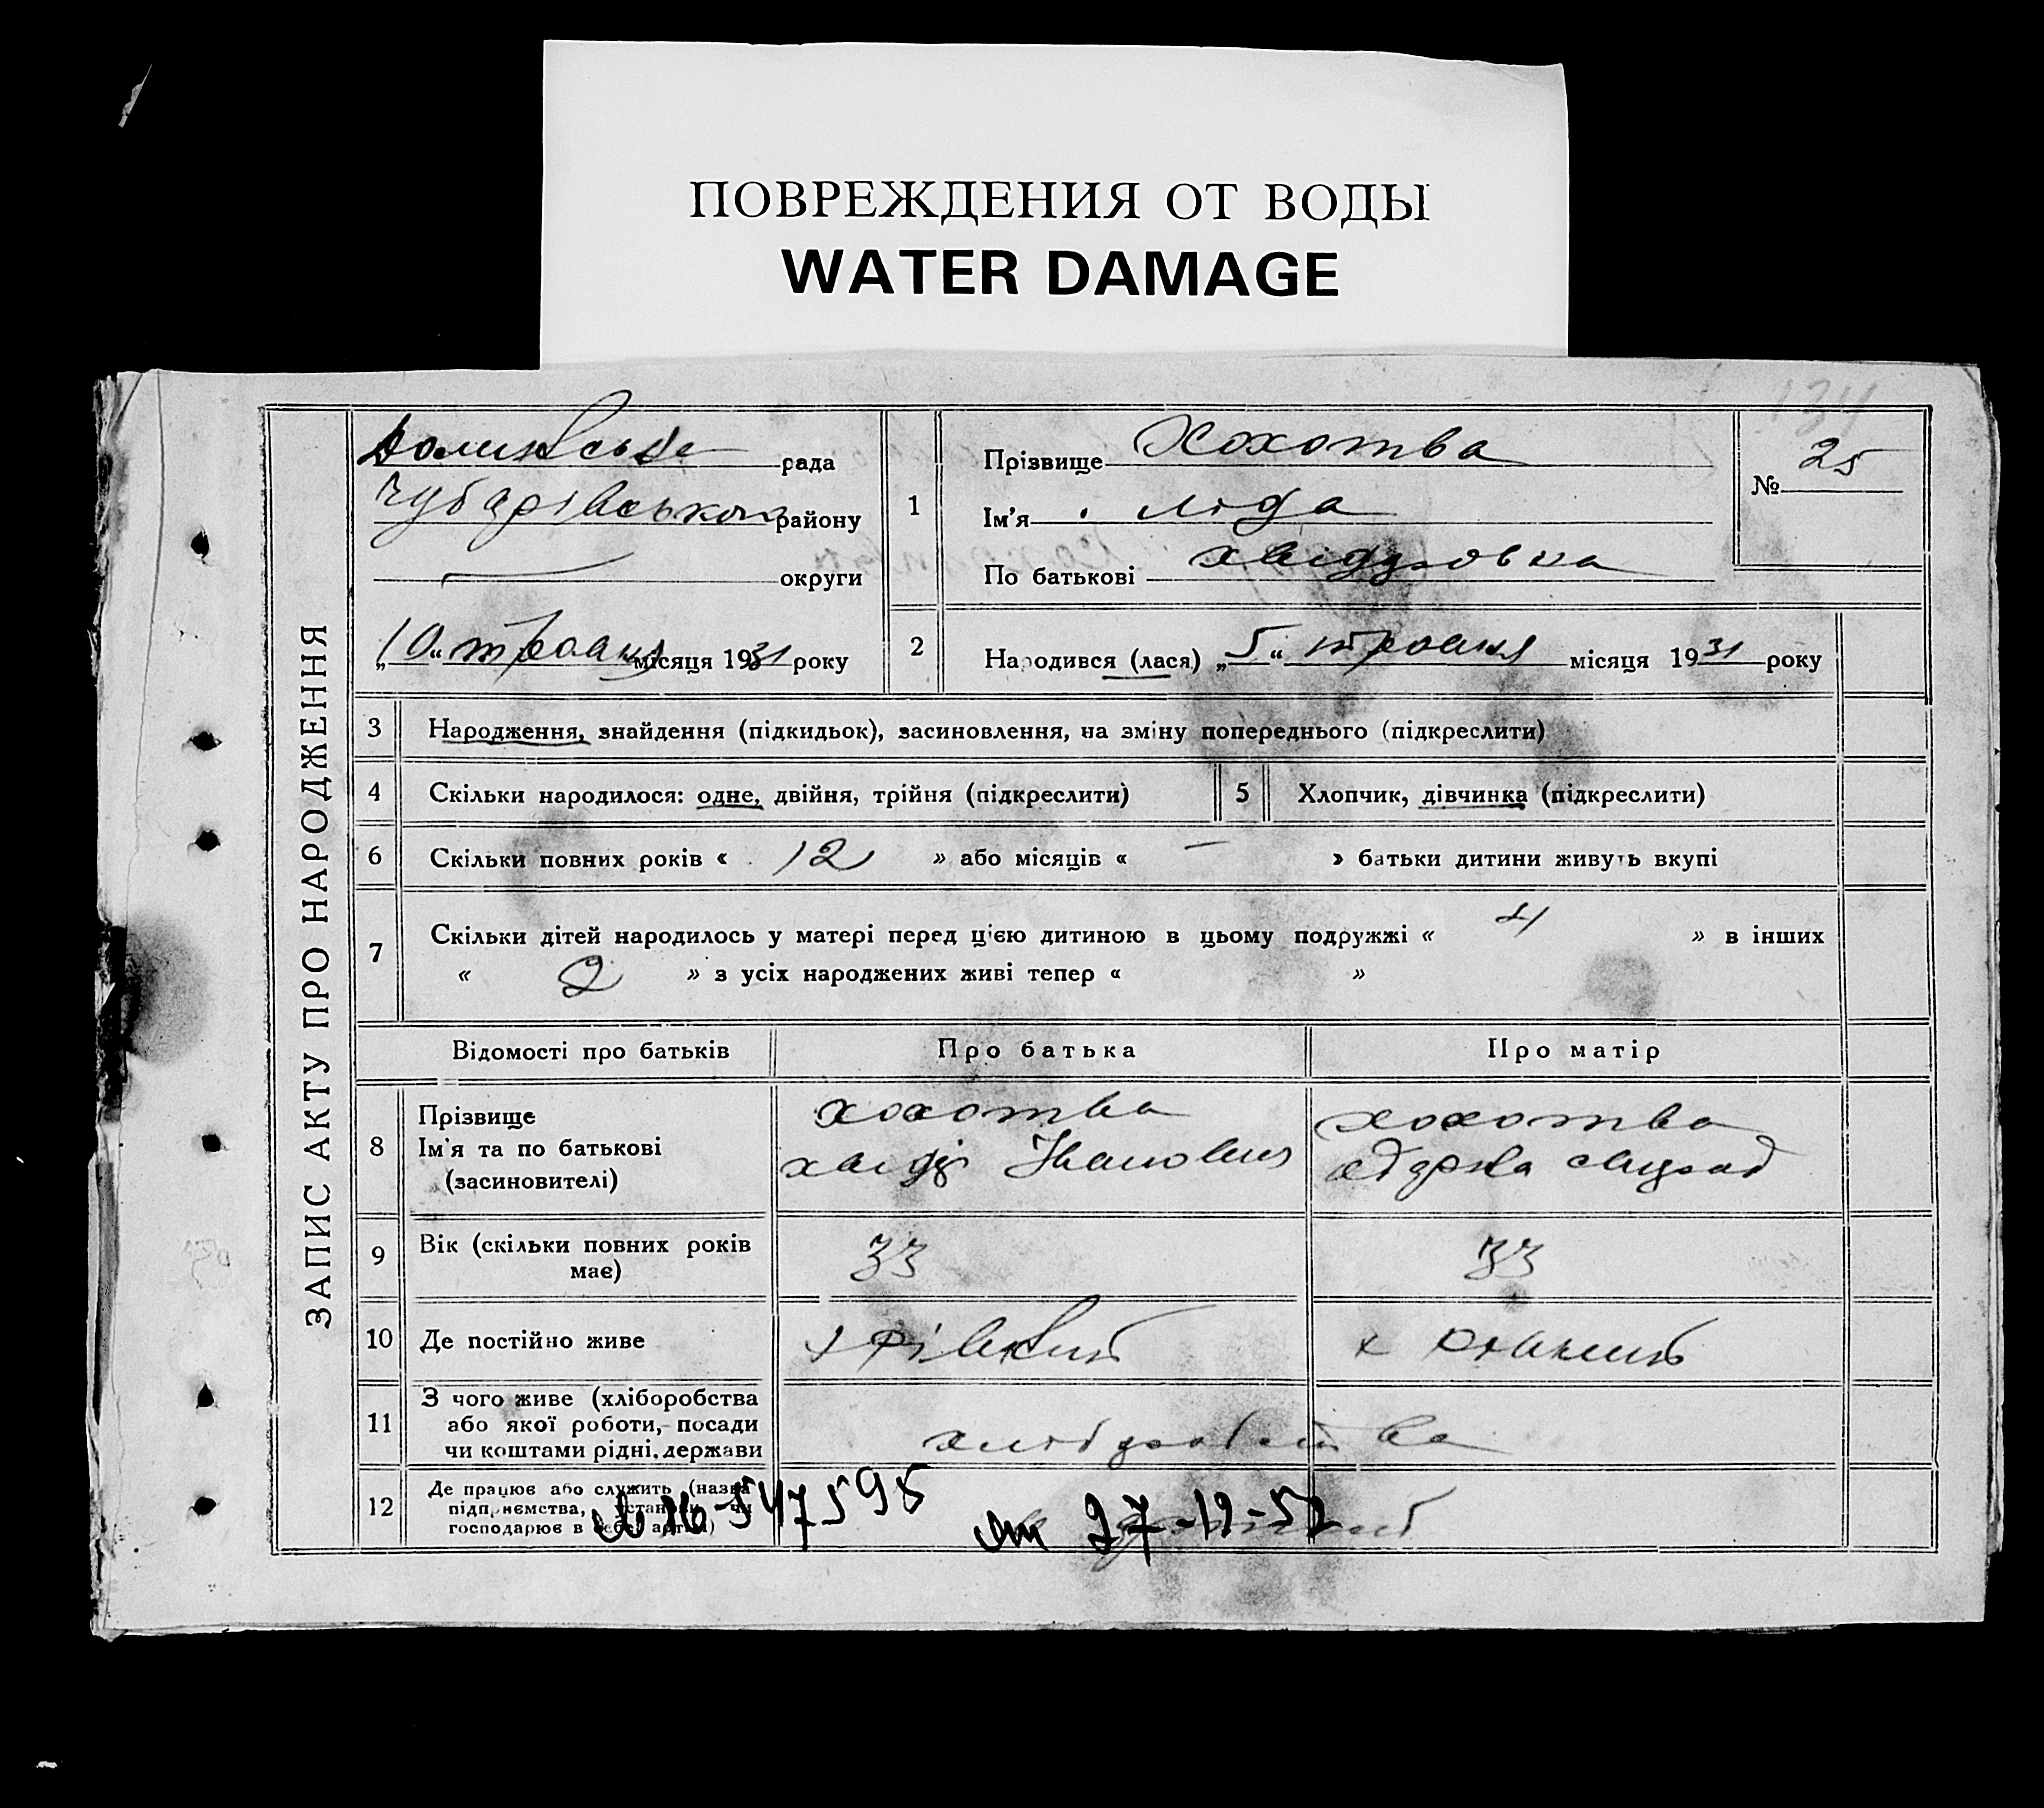 ПОВРЕЖДЕНИЯ ОТ ВОДЫ
WATER DAMAGE
134
ЗАПИС АКТУ ПРО НАРОДЖЕННЯ
рада
Чубарівського району
округи
„10“ травня місяця 1931 року
1
Прізвище Хохотва
Ім’я Ліда
По батькові
№ 25
2
Народився (лася) „5“ травня місяця 1931 року
3 Народження, знайдення (підкидьок), засиновлення, на зміну попереднього (підкреслити)
4 Скільки народилося: одне, двійня, трійня (підкреслити) 5 Хлопчик, дівчинка (підкреслити)
6 Скільки повних років « 12 » або місяців « — » батьки дитини живуть вкупі
7 Скільки дітей народилось у матері перед цією дитиною в цьому подружжі « 4 » в інших
« 2 » з усіх народжених живі тепер « »
Відомості про батьків Про батька Про матір
8 Прізвище
Ім’я та по батькові
(засиновителі)
хохотва
Іванович
хохотва
9 Вік (скільки повних років
має)
33 33
10 Де постійно живе
11 З чого живе (хліборобства
або якої роботи, посади
чи коштами рідні, держави
12 Де працює або служить (назва
підприємства, установи чи
господарює в себе, артілі)
547595 27-12-52